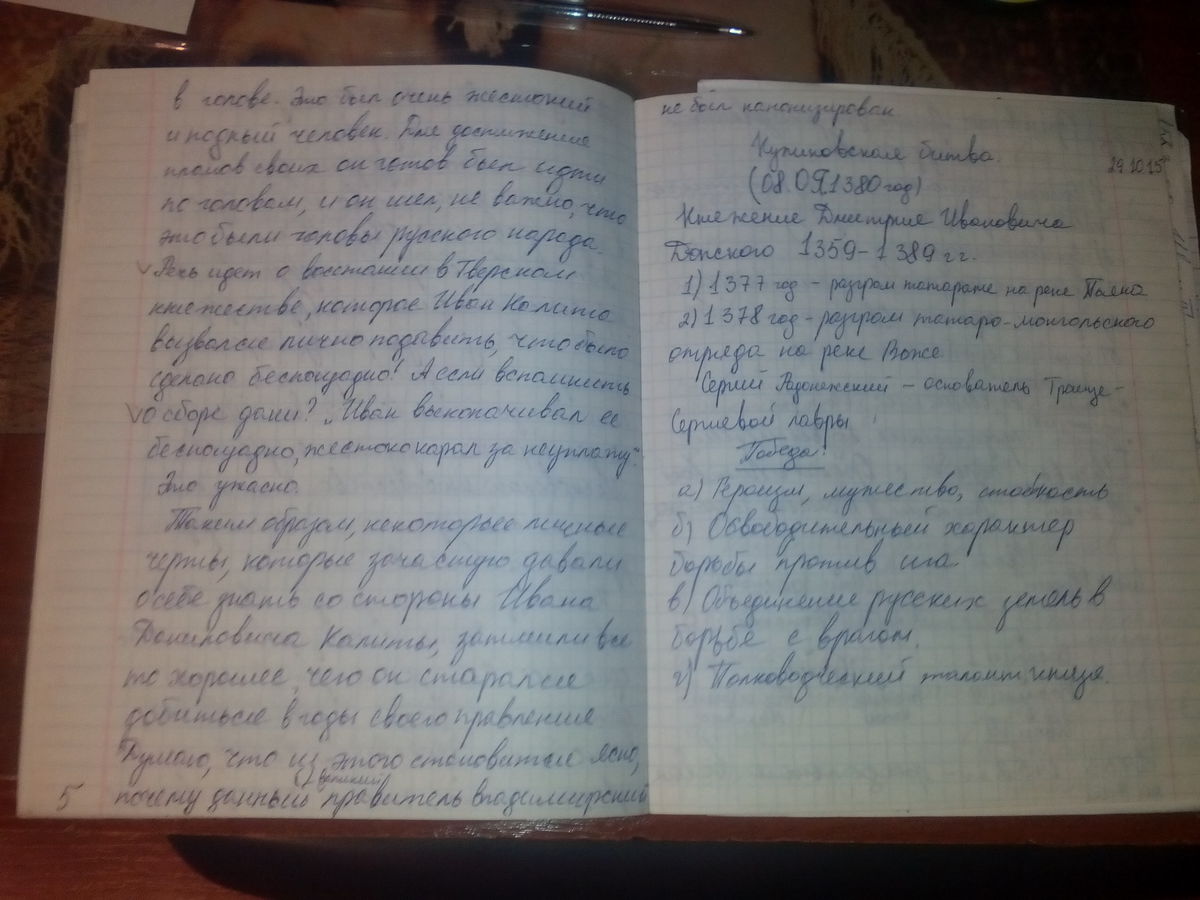 в голове. Это был очень жестокий
и подлый человек. Для достижения
планов своих он готов был идти
по головам, и он шел, не важно, что
это были головы русского народа.
Речь идет о восстании в Тверском
княжестве, которое Иван Калита
вызвался лично подавить, что было
сделано беспощадно! А если вспомнить
о сборе дани? „Иван выколачивал ее
беспощадно, жестоко карал за неуплату".
Это ужасно.
Таким образом, некоторые личные
черты, которые зачастую давали
о себе знать со стороны Ивана
Даниловича Калиты, затмили все
то хорошее, чего он старался
добиться в годы своего правления
Думаю, что из этого становится ясно,
великий
почему данный правитель владимирский
5
не был канонизирован
29.10.15
Куликовская битва.
(08.09.1380 год)
Княжение Дмитрия Ивановича
Донского 1359-1389 гг.
1) 1377 год - разгром татарами на реке Пьяна
2) 1378 год - разгром татаро-монгольского
отряда на реке Воже
Сергий Радонежский - основатель Троице-
Сергиевой лавры
Победа!
а) Героизм, мужество, стойкость
б) Освободительный характер
борьбы против ига
в) Объединение русских земель в
борьбе с врагом.
г) Полководческий талант князя.